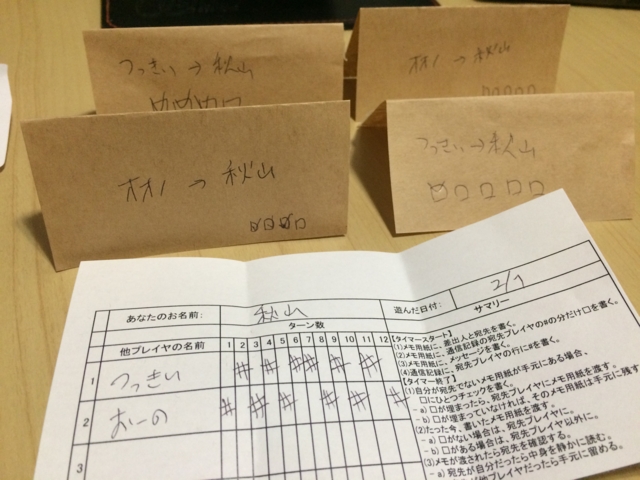 つっきぃ → 秋山
オオノ → 秋山
オオノ → 秋山
つっきぃ → 秋山
あなたのお名前:
秋山
遊んだ日付:
2/7
ターン数
サマリー
他プレイヤの名前
1 2 3 4 5 6 7 8 9 10 11 12
1 つっきぃ # # # # # #
2 おーの # # # # # #
3
【タイマースタート】
(1)メモ用紙に、差出人と宛先を書く。
(2)メモ用紙に、通信記録の宛先プレイヤの#の分だけ口を書く。
(3)メモ用紙に、メッセージを書く。
(4)通信記録に、宛先プレイヤの行に#を書く。
【タイマー終了】
(1)自分が宛先でないメモ用紙が手元にある場合、
口にひとつチェックを書く。
- a) 口が埋まったら、宛先プレイヤにメモ用紙を渡す。
- b) 口が埋まっていなければ、そのメモ用紙は手元に残す
(2)たった今、書いたメモ用紙を渡す。
- a) 口がない場合は、宛先プレイヤに。
- b) 口がある場合は、宛先プレイヤ以外に。
(3)メモが渡されたら宛先を確認する。
- a) 宛先が自分だったら中身を静かに読む。
が他プレイヤだったら手元に留める。